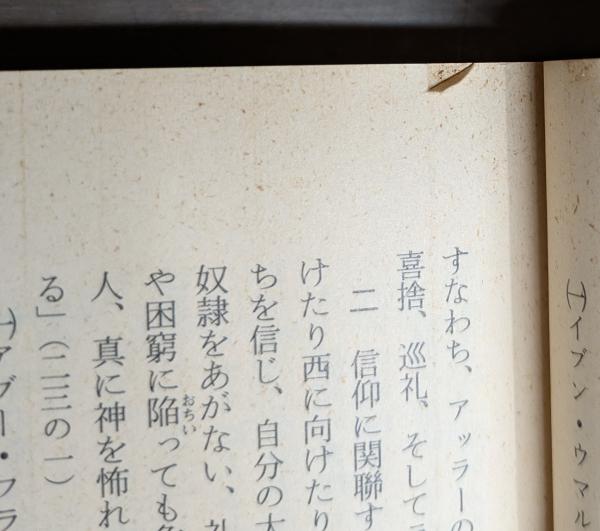 ㈠イブン・ウマル
すなわち、アッラーの
喜捨、巡礼、そして
二 信仰に関聯す
けたり西に向けたり
ちを信じ、自分の大
奴隷をあがない、礼
や困窮に陥っても
おちい
人、真に神を怖れ
る」(二三の一)
㈠アブー・フラ